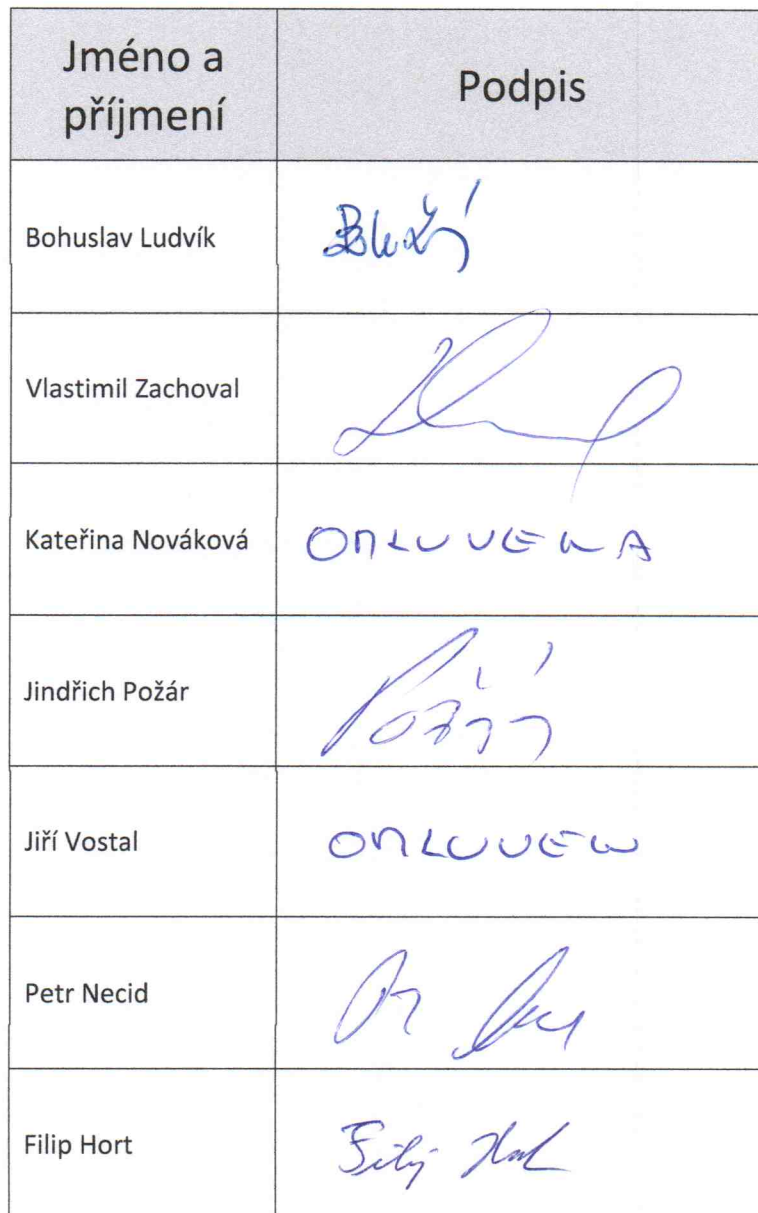 Jméno a
příjmení
Podpis
Bohuslav Ludvík
Vlastimil Zachoval
Kateřina Nováková
OMLUVENA
Jindřich Požár
Požár
Jiří Vostal
OMLUVEN
Petr Necid
Filip Hort
Filip Hort